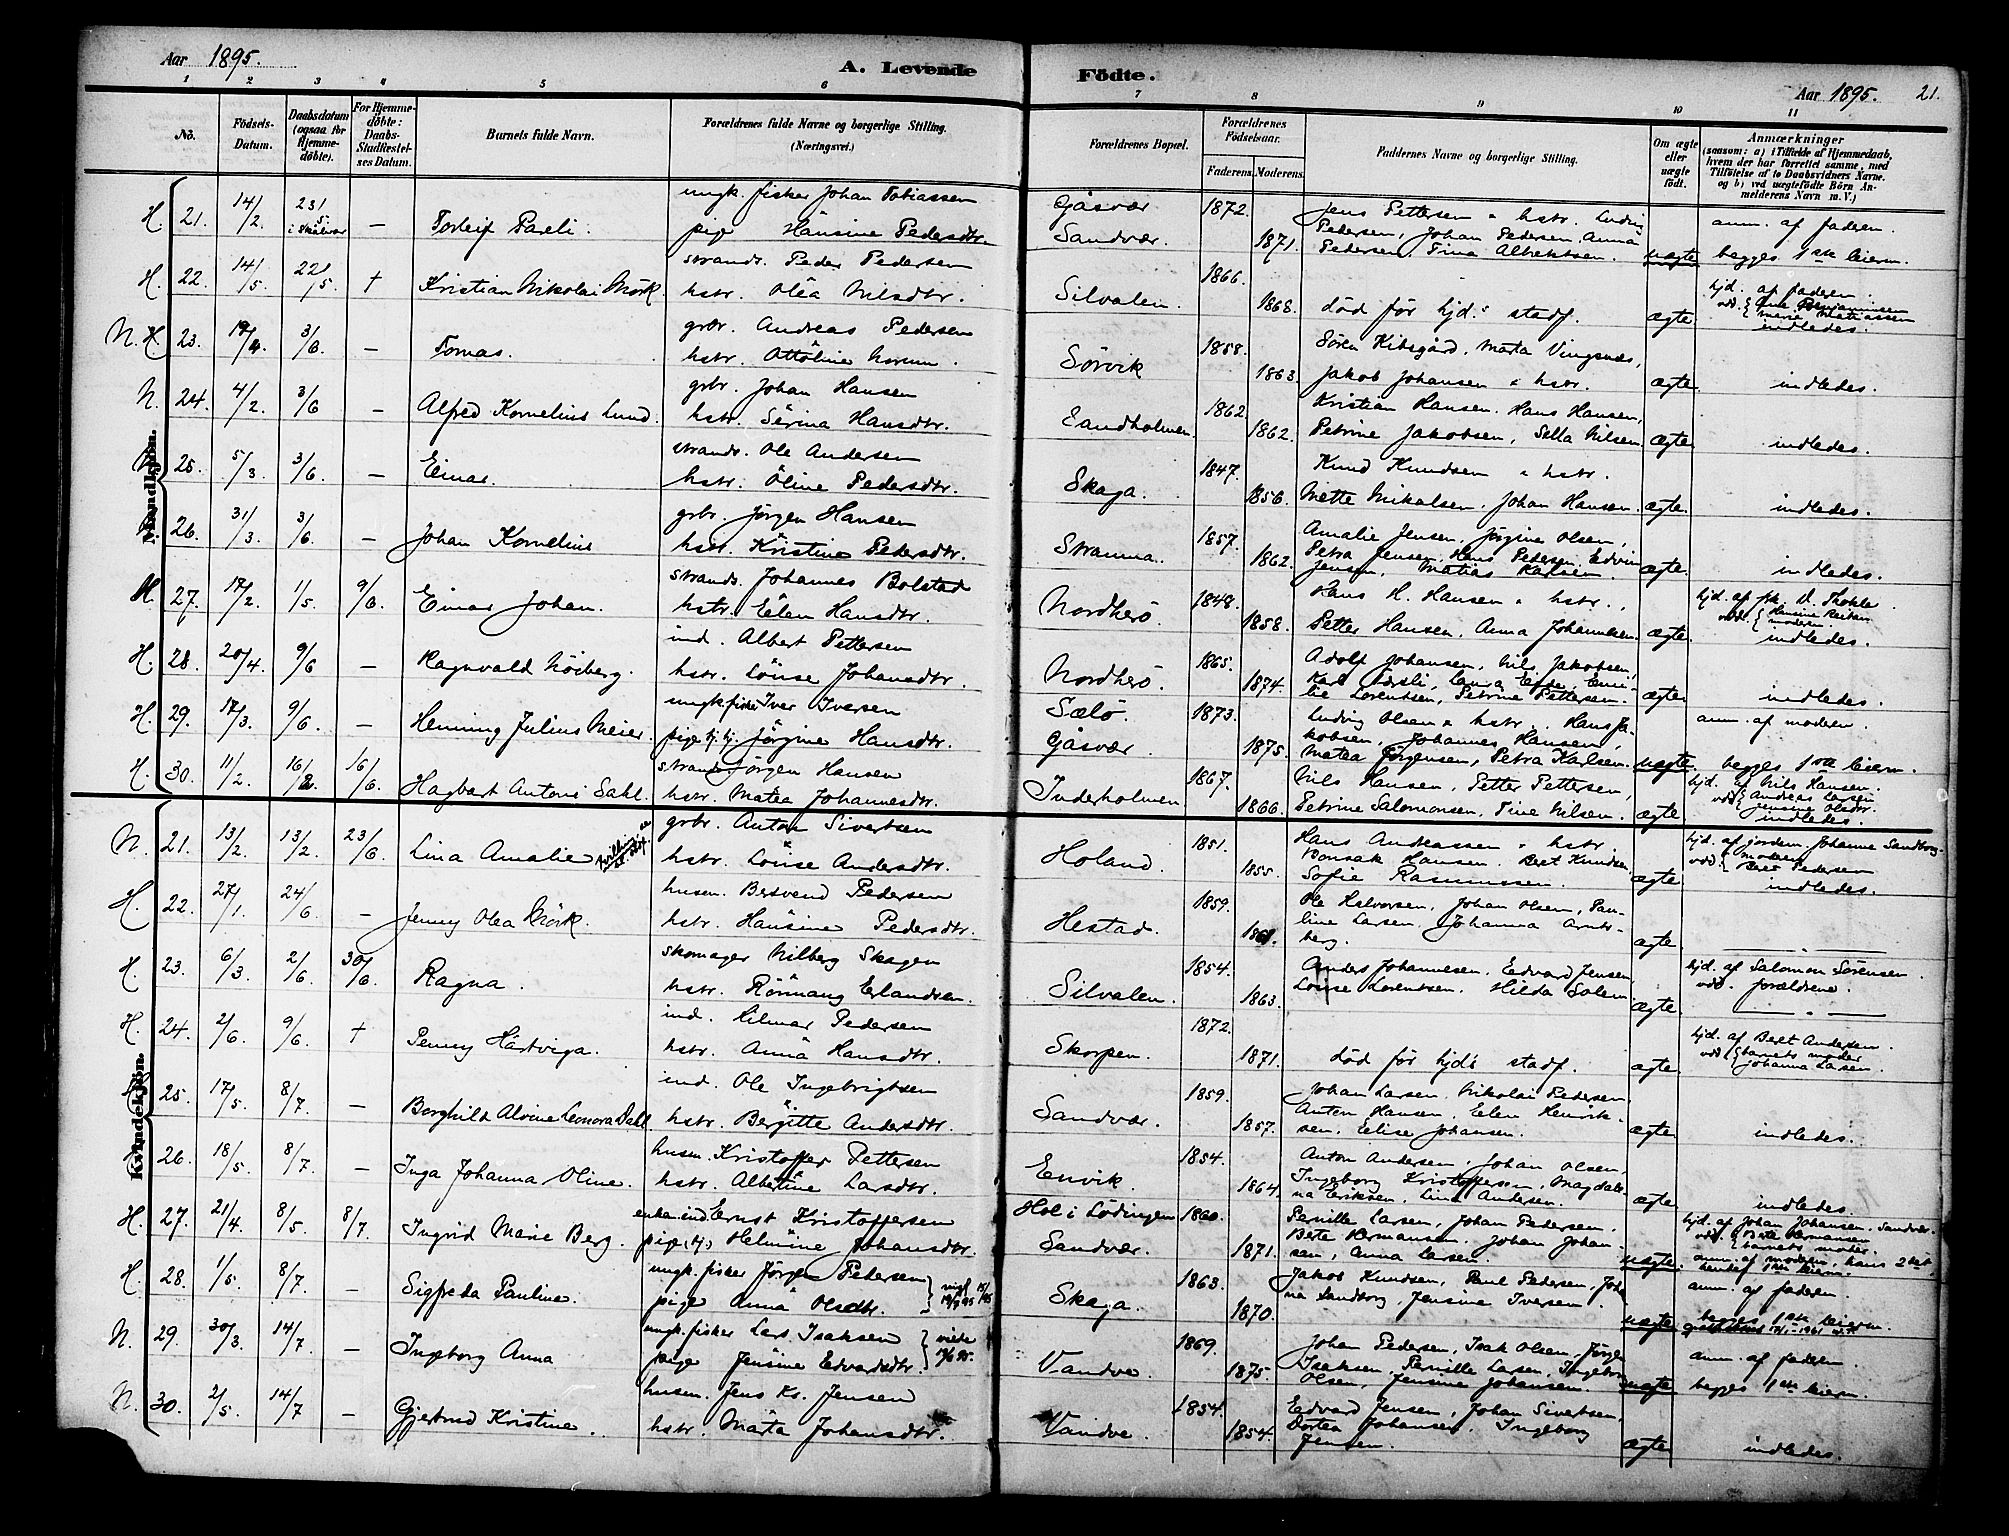 Aar 1895.
A. Levende Födte.
Aar 1895. 21.
1 2 3 4 5 6 7 8 9 10 11
No.
Födsels-Datum.
Daabsdatum (ogsaa for Hjemme-döbte).
For Hjemme-döbte: Daabs-Stadfæstelses Datum.
Barnets fulde Navn.
Forældrenes fulde Navne og borgerlige Stilling. (Næringsvei.)
Forældrenes Bopæl.
Forældrenes Födselsaar.
Faderens. Moderens.
Faddernes Navne og borgerlige Stilling.
Om ægte eller uægte födt.
Anmærkninger (saasom: a) i Tilfælde af Hjemmedaab, hvem der har forrettet samme, med Tilföielse af to Daabsvidners Navne. og b) ved uægtefödte Börn Anmelderens Navn m. V.)
Mandkjön.
H. 21. 14/2. 23/5 i Skålvær — Torleif Pareli. ungk. fisker Johan Tobiassen Gåsvær 1872. Jens Pettersen & hstr. Ludvig anm. af faderen.
pige Hansine Pedersdtr. Sandvær. 1871. Pedersen, Johan Pedersen, Anna Pedersen, Tina Albrektsen. uægte begges 1ste leierm.
H. 22. 14/5. 22/5 † Kristian Nikolai Mörk. strands. Peder Pedersen 1866. hjd. af faderen.
hstr. Olea Nilsdtr. Silvalen. 1868. död för hjd.s stadf. ægte indledes.
N. 23. 3/6 — Tomas. grbr. Andreas Pedersen 1858. Sören Kibsgård, Marta Vingsnes,
hstr. Ottöline Norum. Sörvik 1863. Jakob Johansen & hstr. ægte indledes.
N. 24. 4/2. 3/6 — Alfred Kornelius Lund. grbr. Johan Hansen 1862. Kristian Hansen. Hans Hansen,
hstr. Serina Hansdtr. Sandholmen. 1862. Petrine Jakobsen, Sella Nilsen ægte indledes.
N. 25. 5/3 3/6. — Einar. strands. Ole Andersen 1847. Knud Knudsen & hstr.
hstr. Oline Pedersdtr. Skaga. 1856. Mette Nikalsen. Johan Hansen. ægte. indledes.
26. 31/3. 3/6. — Johan Kornelius grbr. Jörgen Hansen 1857. Amalie Jensen, Jörgine Olsen,
hstr. Kristine Pedersdtr. Stranna. 1862. Petra Jensen, Hans Pedersen, Edvin Jensen, Matias Karlsen. ægte. indledes.
H 27. 17/2. 1/5. 9/6. Einar Johan. strands. Johannes Bolstad 1848. Hans H. Hansen & hstr.,
hstr. Elen Hansdtr. Nordherö. 1858. Petter Hansen, Anna Johannesen ægte. indledes.
H. 28. 20/4. 9/6 — Ragnvald Nöiberg. ind. Albert Pettersen 1865. Adolf Johansen, Nils Jakobsen
hstr. Lovise Johansdtr. Nordherö. 1874. Lorentsen, Petrine Pettersen. ægte indledes.
H. 29. 17/3. 9/6. — Henning Julius Meier. ungk. fisker Iver Iversen Sælö. 1873. Ludvig Olsen & hstr., Hans Jakobsen, Johannes Hansen, anm. af moderen.
pige tj. hj. Jörgine Hansdtr. Gåsvær. 1875. Matea Jörgensen, Petra Karlsen. uægte begges 1ste leierm.
H. 30. 11/2. 16/2. 16/6. Hagbart Antoni Dahl. strands. Jörgen Hansen 1867. Nils Hansen, Petter Pettersen, hjd. af Nils Hansen.
hstr. Matea Johannesdtr. Inderholmen 1866. Petrine Salomonsen, Tine Nilsen. ægte vdd. Andreas Larsen Jensine Olsdtr. indledes.
Kvindekjön.
N. 21. 13/2. 13/2. 23/6. Lina Amalie grbr. Anton Sivertsen 1851. Hans Andreassen & hstr. hjd. af jordem. Johanna Sandborg.
hstr. Lovise Andersdtr. Holand. 1855. Hansen. Beret Knudsen, Sofie Rasmussen. ægte vdd. moderen Beret Pedersen indledes.
H. 22. 27/1. 24/6. — Jenny Olea Mörk. husm. Bersvend Pedersen 1859. Ole Halvorsen, Johan Olsen, Pauline Larsen, Johanna Arntsberg.
hstr. Hansine Pedersdtr. Hestad. 1861. ægte — " —
H. 23. 6/3. 2/6. 30/6. Ragna. skomager Nilberg Skagen 1854. Anders Johannesen, Edvard Jensen hjd. af Salomon Sörensen.
hstr. Rönnaug Erlandsen. Silvalen. 1863. Lovise Lorentsen. Hilda Solem ægte vdd. forældrene. — " —
H. 24. 2/6. 9/6. † Penny Hartviga. ind. Hilmar Pedersen 1872. hjd. af Beret Andersen.
hstr. Anna Hansdtr. Skorpen. 1871. död för hjd.s stadf. ægte. vdd. barnets moder Johanna Larsen.
25. 17/5. 8/7. — Borghild Alvine Leonora Dahl. ind. Ole Ingebrigtsen 1859. Johan Larsen. Nikolai Pedersen
hstr. Bergitte Andersdtr. Sandvær. 1857. Anton Hansen, Elen Henriksen. Elise Johansen. ægte indledes.
26. 18/5. 8/7. — Inga Johanna Oline. husm. Kristoffer Pettersen 1854. Anton Andersen, Johan Olsen,
hstr. Albertine Larsdtr. Envik. 1864. Ingeborg Kristoffersen, Magdalena Eriksen, Lina Andersen. ægte indledes.
H. 27. 21/4. 8/5. 8/7. Ingrid Marie Berg. enkem. ind. Ernst Kristoffersen Hol i Lödingen 1860. Pernille Larsen, Johan Pedersen. hjd. af Johan Johansen. Sandvær.
pige (tj.) Helmine Johansdtr. Sandvær. 1871. Berte Hermansen. Johan Johansen, Anna Larsen. uægte. vdd. Berte Hermansen barnets moder. anm. af moderen, hans 2det, hendes 1ste leierm.
H. 28. 1/5. 8/7. — Sigfreda Pauline. ungk. fisker Jörgen Pedersen 1863. Jakob Knudsen, Paul Pedersen, Johanna Sandborg, Jensine Iversen. anm. af faderen.
pige Anna Olsdtr. Skaga. 1870. uægte begges 1ste leierm.
N. 29. 30/3. 14/7. — Ingeborg Anna ungk. fisker Lars Isaksen viede 1869. Johan Pedersen, Isak Olsen, Jörgen anm. af faderen.
pige Jensine Edvardsdtr. Vandve. 1875. Isaksen, Pernille Larsen, Ingeborg Olsen, Jensine Johansen. uægte begges 1ste leierm.
N. 30. 2/5. 14/7 — Gjertrud Kristine. husm. Jens Kr. Jensen 1854. Edvard Jensen, Johan Sivertsen,
hstr. Marta Johansdtr. Vandve. 1854. Dortea Johansen, Ingeborg Jensen. ægte indledes.